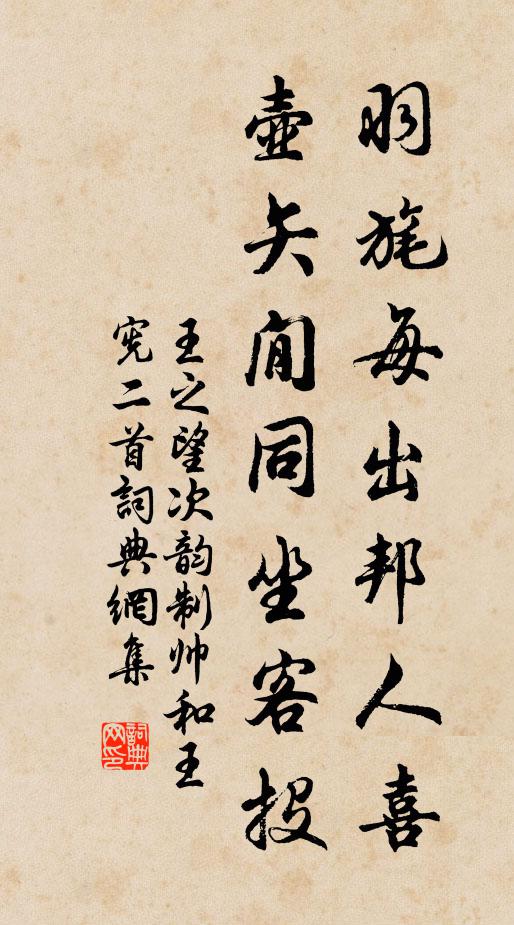 羽旄每出邦人喜
壶矢间同坐客投
王之望次韵制帅和王
宪二首詞典網集
詞典網印